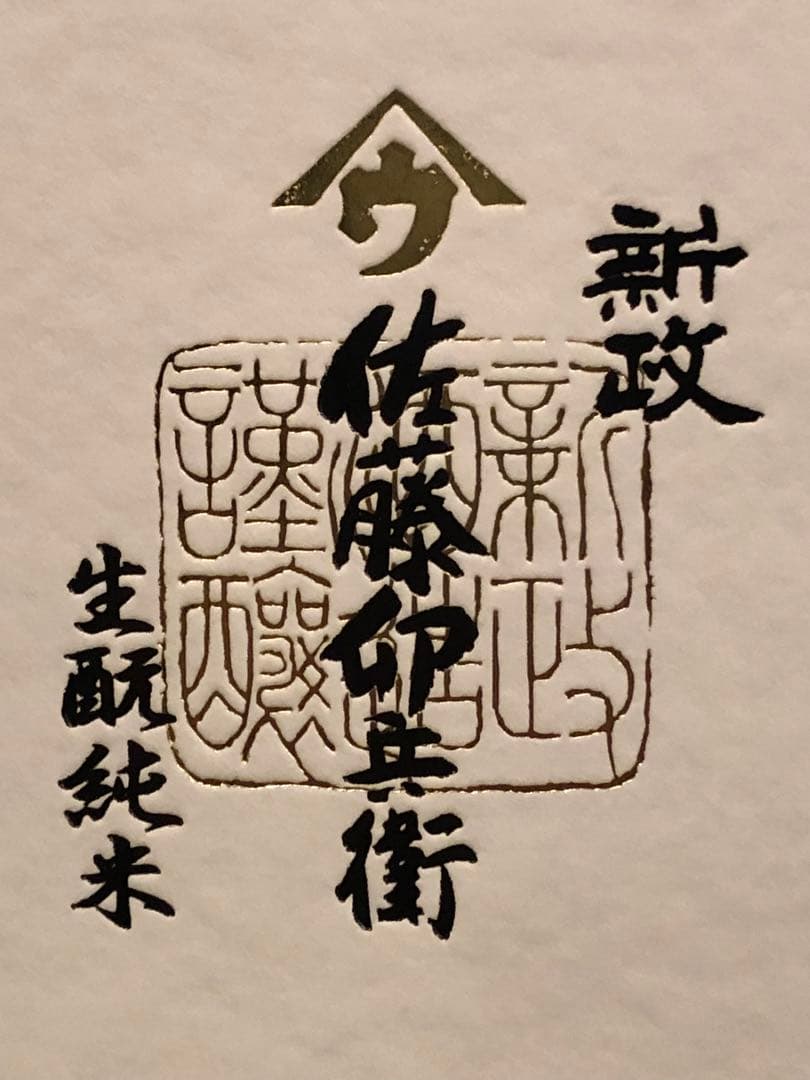 ウ
新政
佐藤卯兵衛
生酛純米
新政
謹釀